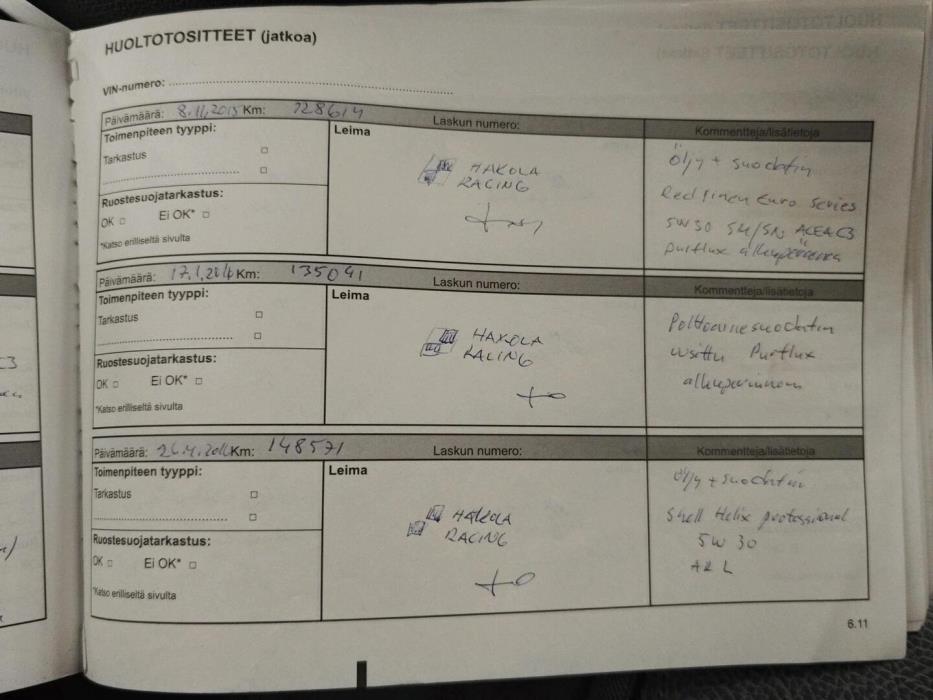 HUOLTOTOSITTEET (jatkoa)
VIN-numero:
Päivämäärä: 8.11.2015 Km: 128614
Laskun numero:
Kommentteja/lisätietoja
Toimenpiteen tyyppi:
Tarkastus
Ruostesuojatarkastus:
OK Ei OK*
*Katso erilliseltä sivulta
Leima
HAKOLA
RACING
Öljy + suodatin
Euro Series
5W30 ACEA C3
Purflux alkuperäinen
Päivämäärä: 17.1.2016 Km: 135041
Laskun numero:
Kommentteja/lisätietoja
Toimenpiteen tyyppi:
Tarkastus
Ruostesuojatarkastus:
OK Ei OK*
*Katso erilliseltä sivulta
Leima
HAKOLA
RACING
Polttoainesuodatin
uusittu Purflux
alkuperäinen
Päivämäärä: Km: 148571
Laskun numero:
Kommentteja/lisätietoja
Toimenpiteen tyyppi:
Tarkastus
Ruostesuojatarkastus:
OK Ei OK*
*Katso erilliseltä sivulta
Leima
HAKOLA
RACING
Öljy + suodatin
Shell Helix professional
5W 30
AR L
6.11